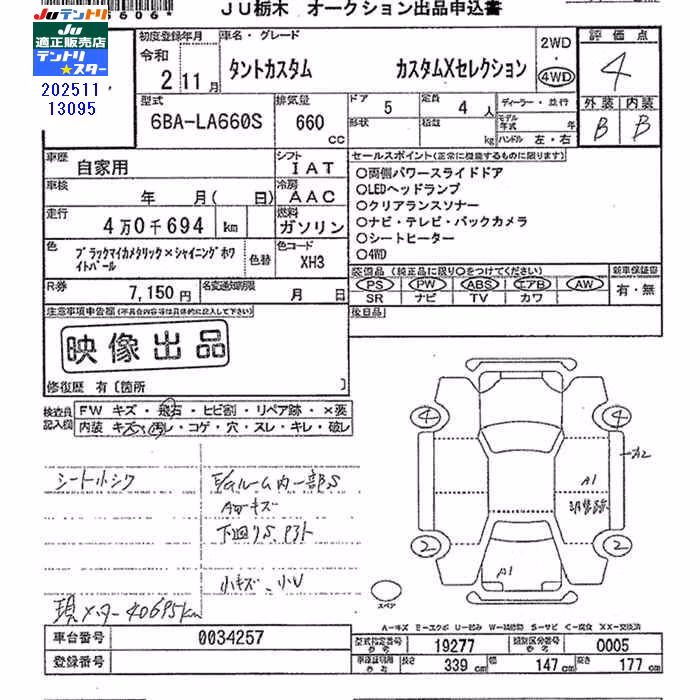 JU栃木 オークション出品申込書
JUテントリ
JU
適正販売店
テントリ
スター
202511
13095
初度登録年月
令和
2 11月
車名・グレード
タントカスタム カスタムXセレクション
2WD
4WD
評価点
4
外装 内装
B B
型式
6BA-LA660S
排気量
660
cc
ドア
5
定員
4 人
形状
積載
kg
ディーラー・並行
モデル年式
年
ハンドル 左・右
車歴
自家用
シフト
IAT
車検
年 月(日)
冷房
AAC
走行
4万0千694 km
燃料
ガソリン
色
ブラックマイカメタリック×シャイニングホワイトパール
色替
色コード
XH3
R券
7,150円
名変通知期限
月 日
セールスポイント(正常に機能するものに限ります)
○両側パワースライドドア
○LEDヘッドランプ
○クリアランスソナー
○ナビ・テレビ・バックカメラ
○シートヒーター
○4WD
装備品(純正品に限り○をつけてください)
PS PW ABS エアB AW
SR ナビ TV カワ
新車保証書
有・無
後日品
注意事項申告欄(不具合内容等は具体的に記入して下さい)
映像出品
修復歴 有〔箇所 〕
検査員記入欄
FW キズ・飛石・ヒビ割・リペア跡・×要
内装 キズ・汚レ・コゲ・穴・スレ・キレ・破レ
シート小シワ
ルーム内一部S
AWキズ
下回りS
小キズ、小U
現メーター40695km
4 4
2 2
A1
A1
スペア
A-キズ E-エクボ U-凹み W-補修跡 S-サビ C-腐食 XX-交換済
車台番号
0034257
登録番号
型式指定番号
19277
類別区分番号
0005
長さ 339cm 幅 147cm 高さ 177cm